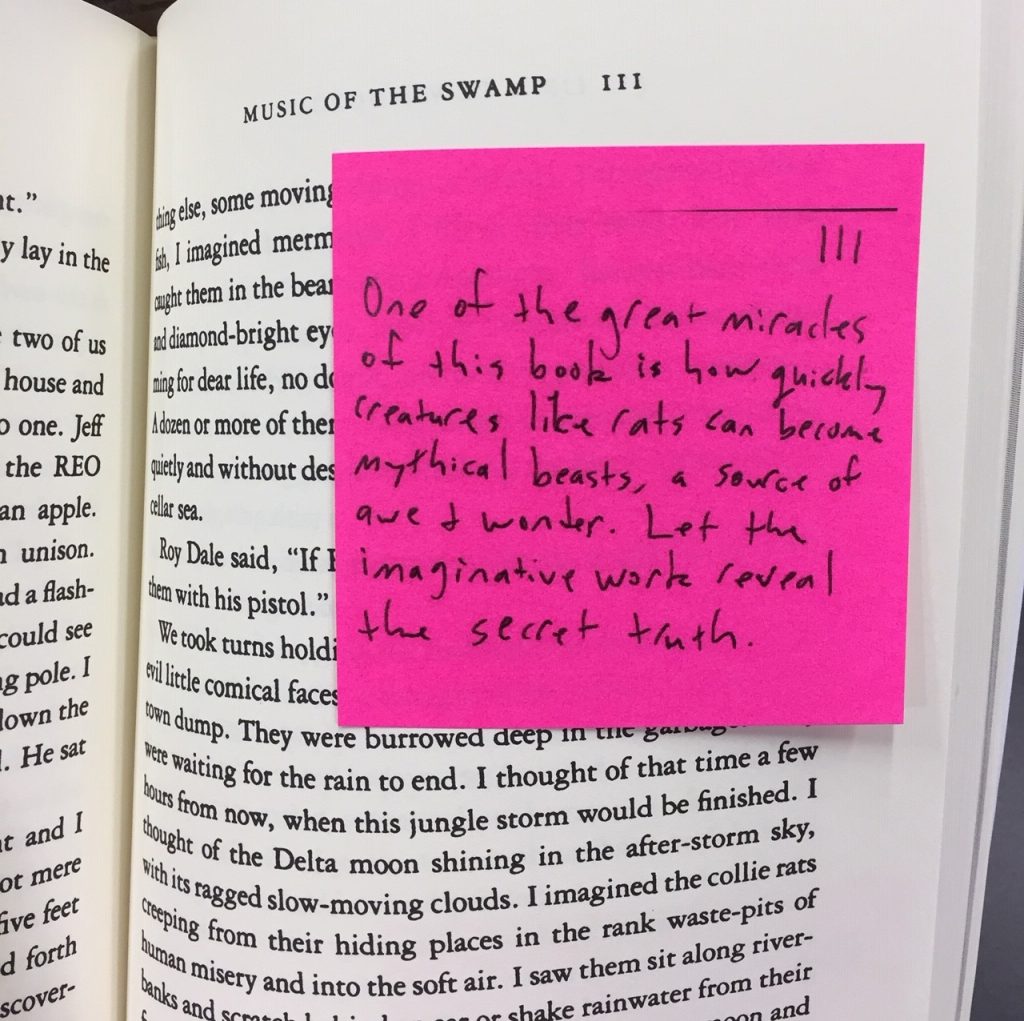 MUSIC OF THE SWAMP III
t."
y lay in the
two of us
house and
o one. Jeff
the REO
an apple.
n unison.
d a flash-
could see
g pole. I
down the
. He sat
t and I
ot mere
five feet
d forth
scover-
thing else, some moving
fish, I imagined merm
caught them in the bear
and diamond-bright eye
ming for dear life, no do
A dozen or more of ther
quietly and without des
cellar sea.
Roy Dale said, "If
them with his pistol."
We took turns holdi
evil little comical faces
town dump. They were burrowed deep in the
were waiting for the rain to end. I thought of that time a few
hours from now, when this jungle storm would be finished. I
thought of the Delta moon shining in the after-storm sky,
with its ragged slow-moving clouds. I imagined the collie rats
creeping from their hiding places in the rank waste-pits of
human misery and into the soft air. I saw them sit along river-
banks and or shake rainwater from their
oon and
III
One of the great miracles
of this book is how quickly
creatures like rats can become
mythical beasts, a source of
awe & wonder. Let the
imaginative work reveal
the secret truth.